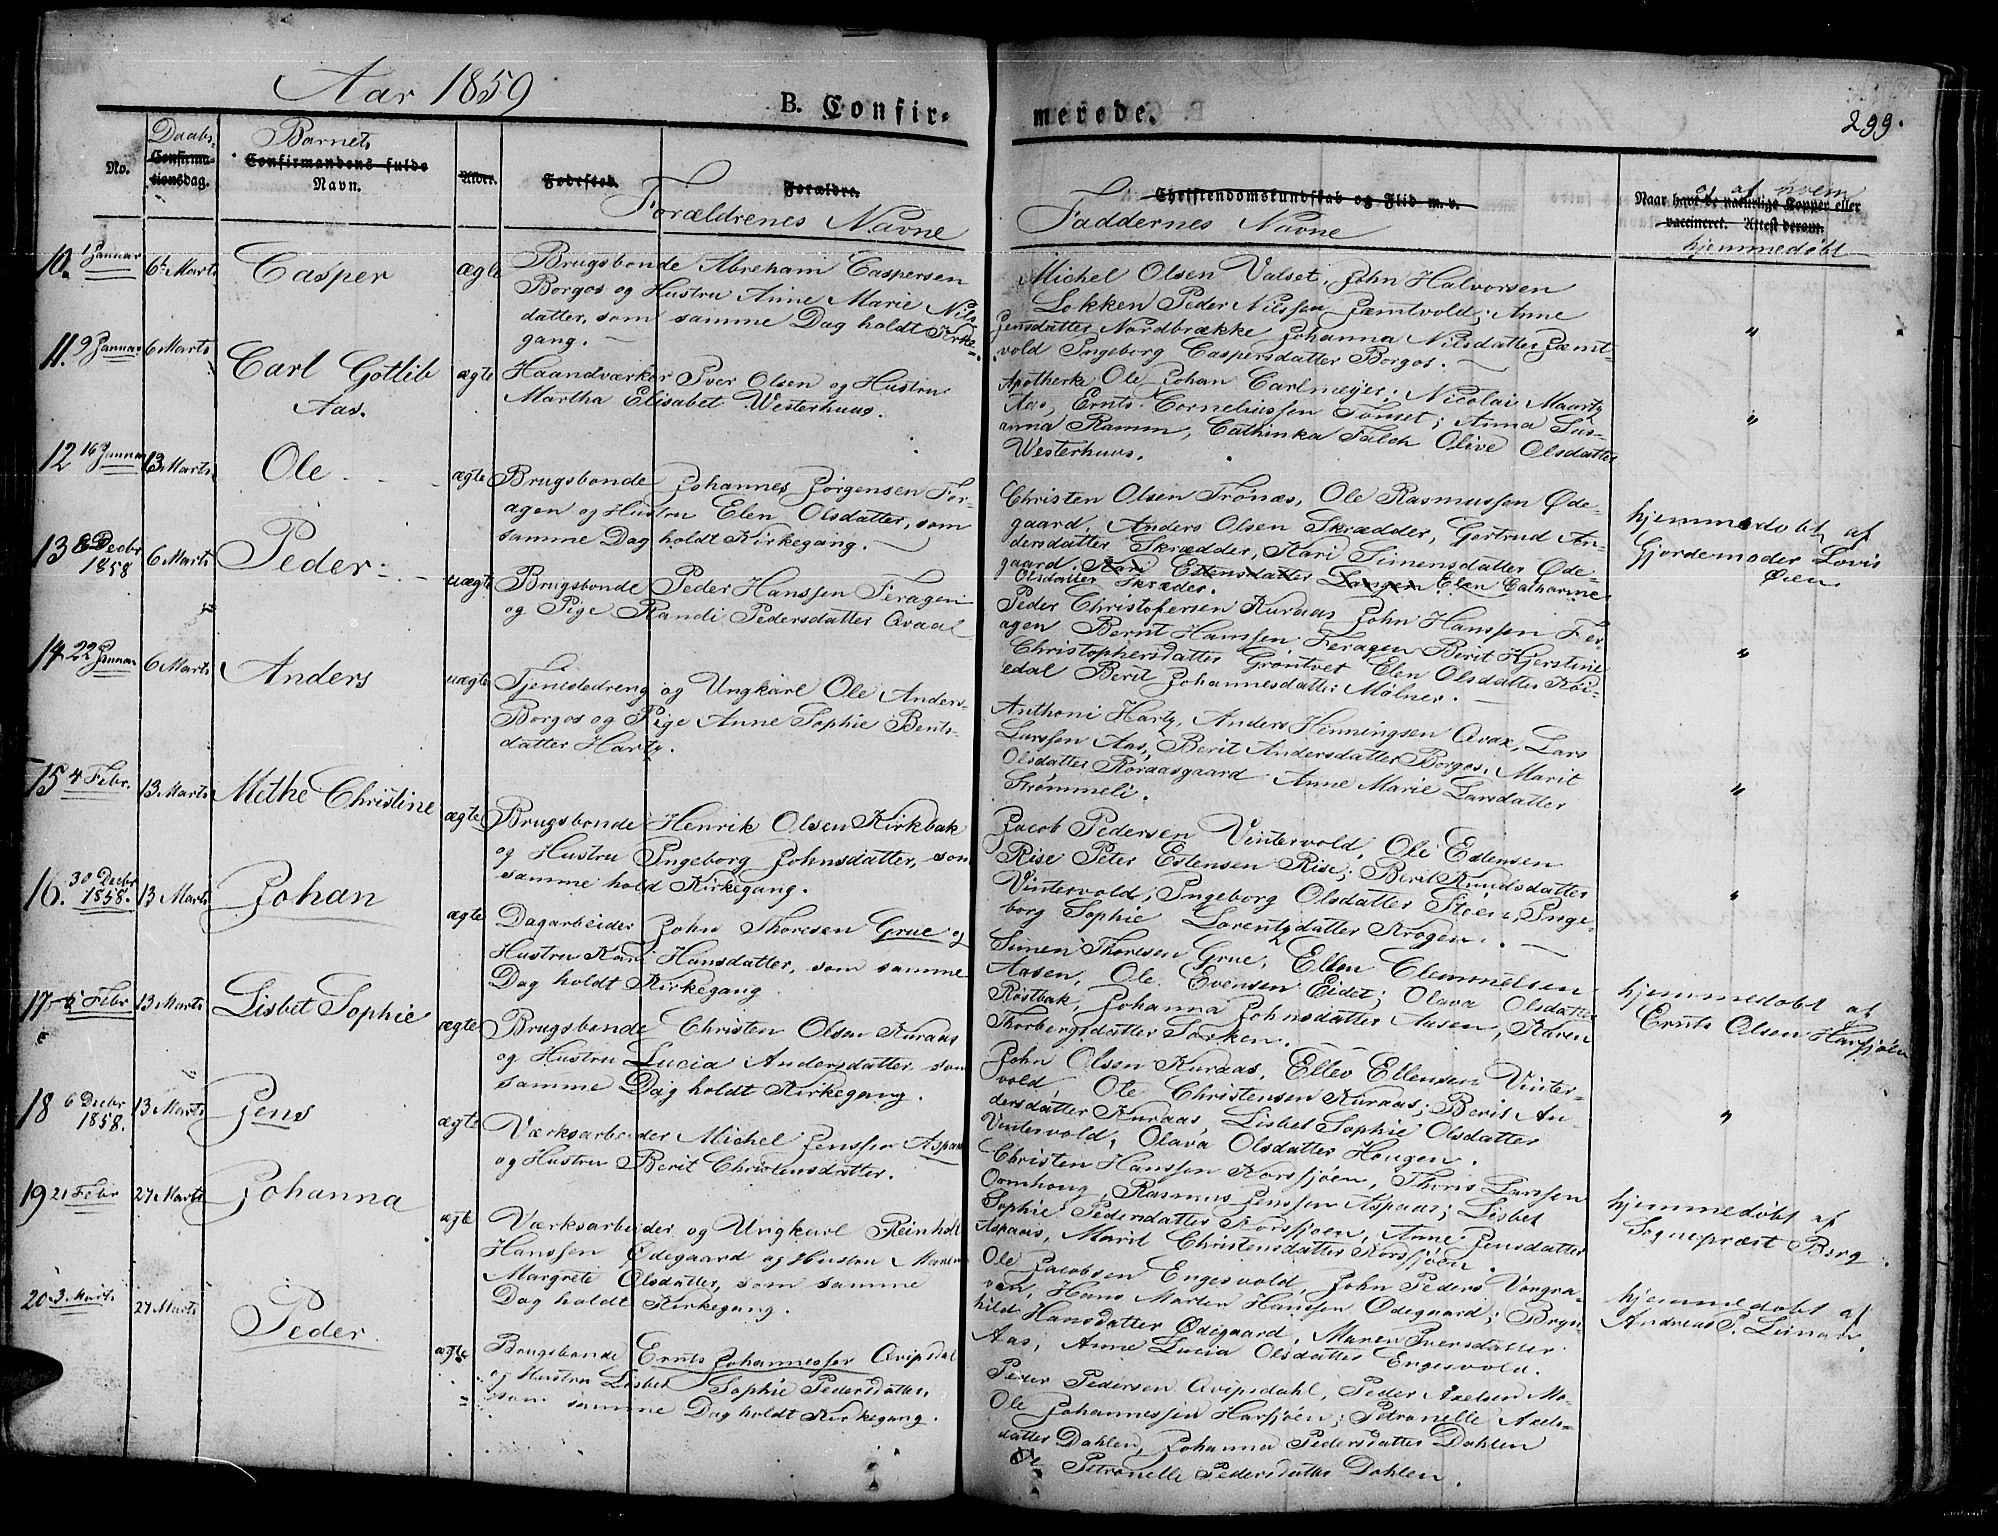 Aar 1859
B. Confir-
merede.
299.
No.
Daabs-
Confirma-
tionsdag.
Barnets
Confirmandens fulde
Navn.
Alder.
Fødested.
Forældre.
Forældrenes Navne
Christendomskundskab og Flid m.v.
Faddernes Navne
og af hvem
Naar havt de naturlige Kopper eller
vaccineret. Attest derom.
hjemmedøbt
10. 1 Januar
6te Marts
Casper
ægte
Brugsbonde Abreham Caspersen
Borgos og Hustru Anne Marie Nils-
datter, som samme Dag holdt Kirke-
gang.
Michel Olsen Valset, John Halvorsen
Løkken Peder Nilssen Jæmtvold; Anne
Jensdatter Nordbrække Johanna Nilsdatter Jæmt-
vold Ingeborg Caspersdatter Borgos.
"
11. 9 Januar
6 Marts
Carl Gotlib
Aas.
ægte
Haandværker Iver Olsen og Hustru
Martha Elisabet Westerhuus.
Apotheker Ole Johan Carlmeyer; Nicolai Mauritz
Aas, Ernts Corneliussen Tønset; Anna Sus-
anna Ramm, Cathinka Falch Olive Olsdatter
Westerhuus.
"
12 16 Januar
13 Marts
Ole
ægte
Brugsbonde Johannes Jørgensen Fer-
agen og Hustru Elen Olsdatter, som
samme Dag holdt Kirkegang.
Christen Olsen Trønæs, Ole Rasmussen Øde-
gaard, Anders Olsen Skrædder, Gertrud An-
dersdatter Skrædder, Kari Simensdatter Øde-
gaard, Kari Estensdatter Langen Elen Catharine
Olsdatter Skræder.
hjemmedøbt af
Gjordemoder Lovis
Øien
13 8 Decbr
1858
6 Marts
Peder
uægte
Brugsbonde Peder Hanssen Feragen
og Pige Randi Pedersdatter Qvaal
Peder Christofersen Kuraas John Hanssen Fer-
agen Bernt Hanssen Feragen Berit Kjerstine
Christophersdatter Grøntvet Elen Olsdatter Køi-
edal Berit Johannesdatter Mølner.
"
14 22 Januar
6 Marts
Anders
uægte
Tjenestedreng og Ungkarl Ole Anders.
Borgos og Pige Anne Sophie Bents-
datter Hartz.
Anthoni Hartz, Anders Henningsen Qvax, Lars
Larssen Aas, Berit Andersdatter Borgos, Marit
Olsdatter Røraasgaard Anne Marie Larsdatter
Strømmeli.
"
15 4 Febr.
13 Marts
Methe Christine
ægte
Brugsbonde Henrik Olsen Kirkbak
og Hustru Ingeborg Johnsdatter, som
samme hold Kirkegang.
Jacob Pedersen Vintervold, Ole Estensen
Rise Peter Estensen Rise; Berit Knudsdatter
Vintervold, Ingeborg Olsdatter Støen, Inge-
borg Sophie Lorentzdatter Krogen.
"
16. 30 Decbr
1858.
13 Marts
Johan
ægte
Dagarbeider John Thoresen Grue og
Hustru Kari Hansdatter, som samme
Dag holdt Kirkegang.
Simen Thoresen Grue, Ellen Clemmetsen
Aasen, Ole Evensen Eidet; Olava Olsdatter
Røstbak, Johanna Johnsdatter Aasen, Karen
Thorbergsdatter Sørken.
17 5 Febr
13 Marts
Lisbet Sophie
ægte
Brugsbonde Christen Olsen Kuraas
og Hustru Lucia Andersdatter som
samme Dag holdt Kirkegang.
John Olsen Kuraas, Ellev Ellensen Vinter-
vold Ole Christensen Kuraas; Berit An-
dersdatter Kuraas, Lisbet Sophie Olsdatter
Vintervold, Olava Olsdatter Haugen.
hjemmedøbt af
Ernts Olsen Harsjøen
18 6 Decbr
1858.
13 Marts
Jens
ægte
Værksarbeider Michel Jenssen Aspaas
og Hustru Berit Christensdatter.
Christen Hanssen Korssjøen, Thoris Larssen
Ormhaug, Rasmus Jenssen Aspaas; Lisbet
Sophie Pedersdatter Korssjøen, Anne Jensdatter
Aspaas, Marit Christensdatter Korssjøen.
"
19 21 Febr
27 Marts
Johanna
ægte
Værksarbeider og Ungkarl Reinholt
Hanssen Ødegaard og Hustru Maren
Margrete Olsdatter, som samme
Dag holdt Kirkegang.
Ole Jacobsen Engesvold John Peders. Vongra-
ven, Hans Morten Hanssen Ødegaard; Bryn-
hild Hansdatter Ødegaard, Maren Iversdatter
Aas, Anne Lucia Olsdatter Engesvold.
hjemmedøbt af
Sognepræst Borg.
20 3 Marts
27 Marts
Peder
ægte
Brugsbonde Ernts Johannessen Qvipsdal
og Hustru Lisbet Sophie Pedersdatter,
som samme Dag holdt Kirkegang.
Peder Pedersen Qvipsdahl, Peder Axelsen Mo-
Ole Johannessen Harsjøen; Petronelle Axels-
datter Dahlen, Johanna Pedersdatter Dahlen
og Petronelle Pedersdatter Dahlen.
hjemmedøbt af
Andreas P. Lunan.